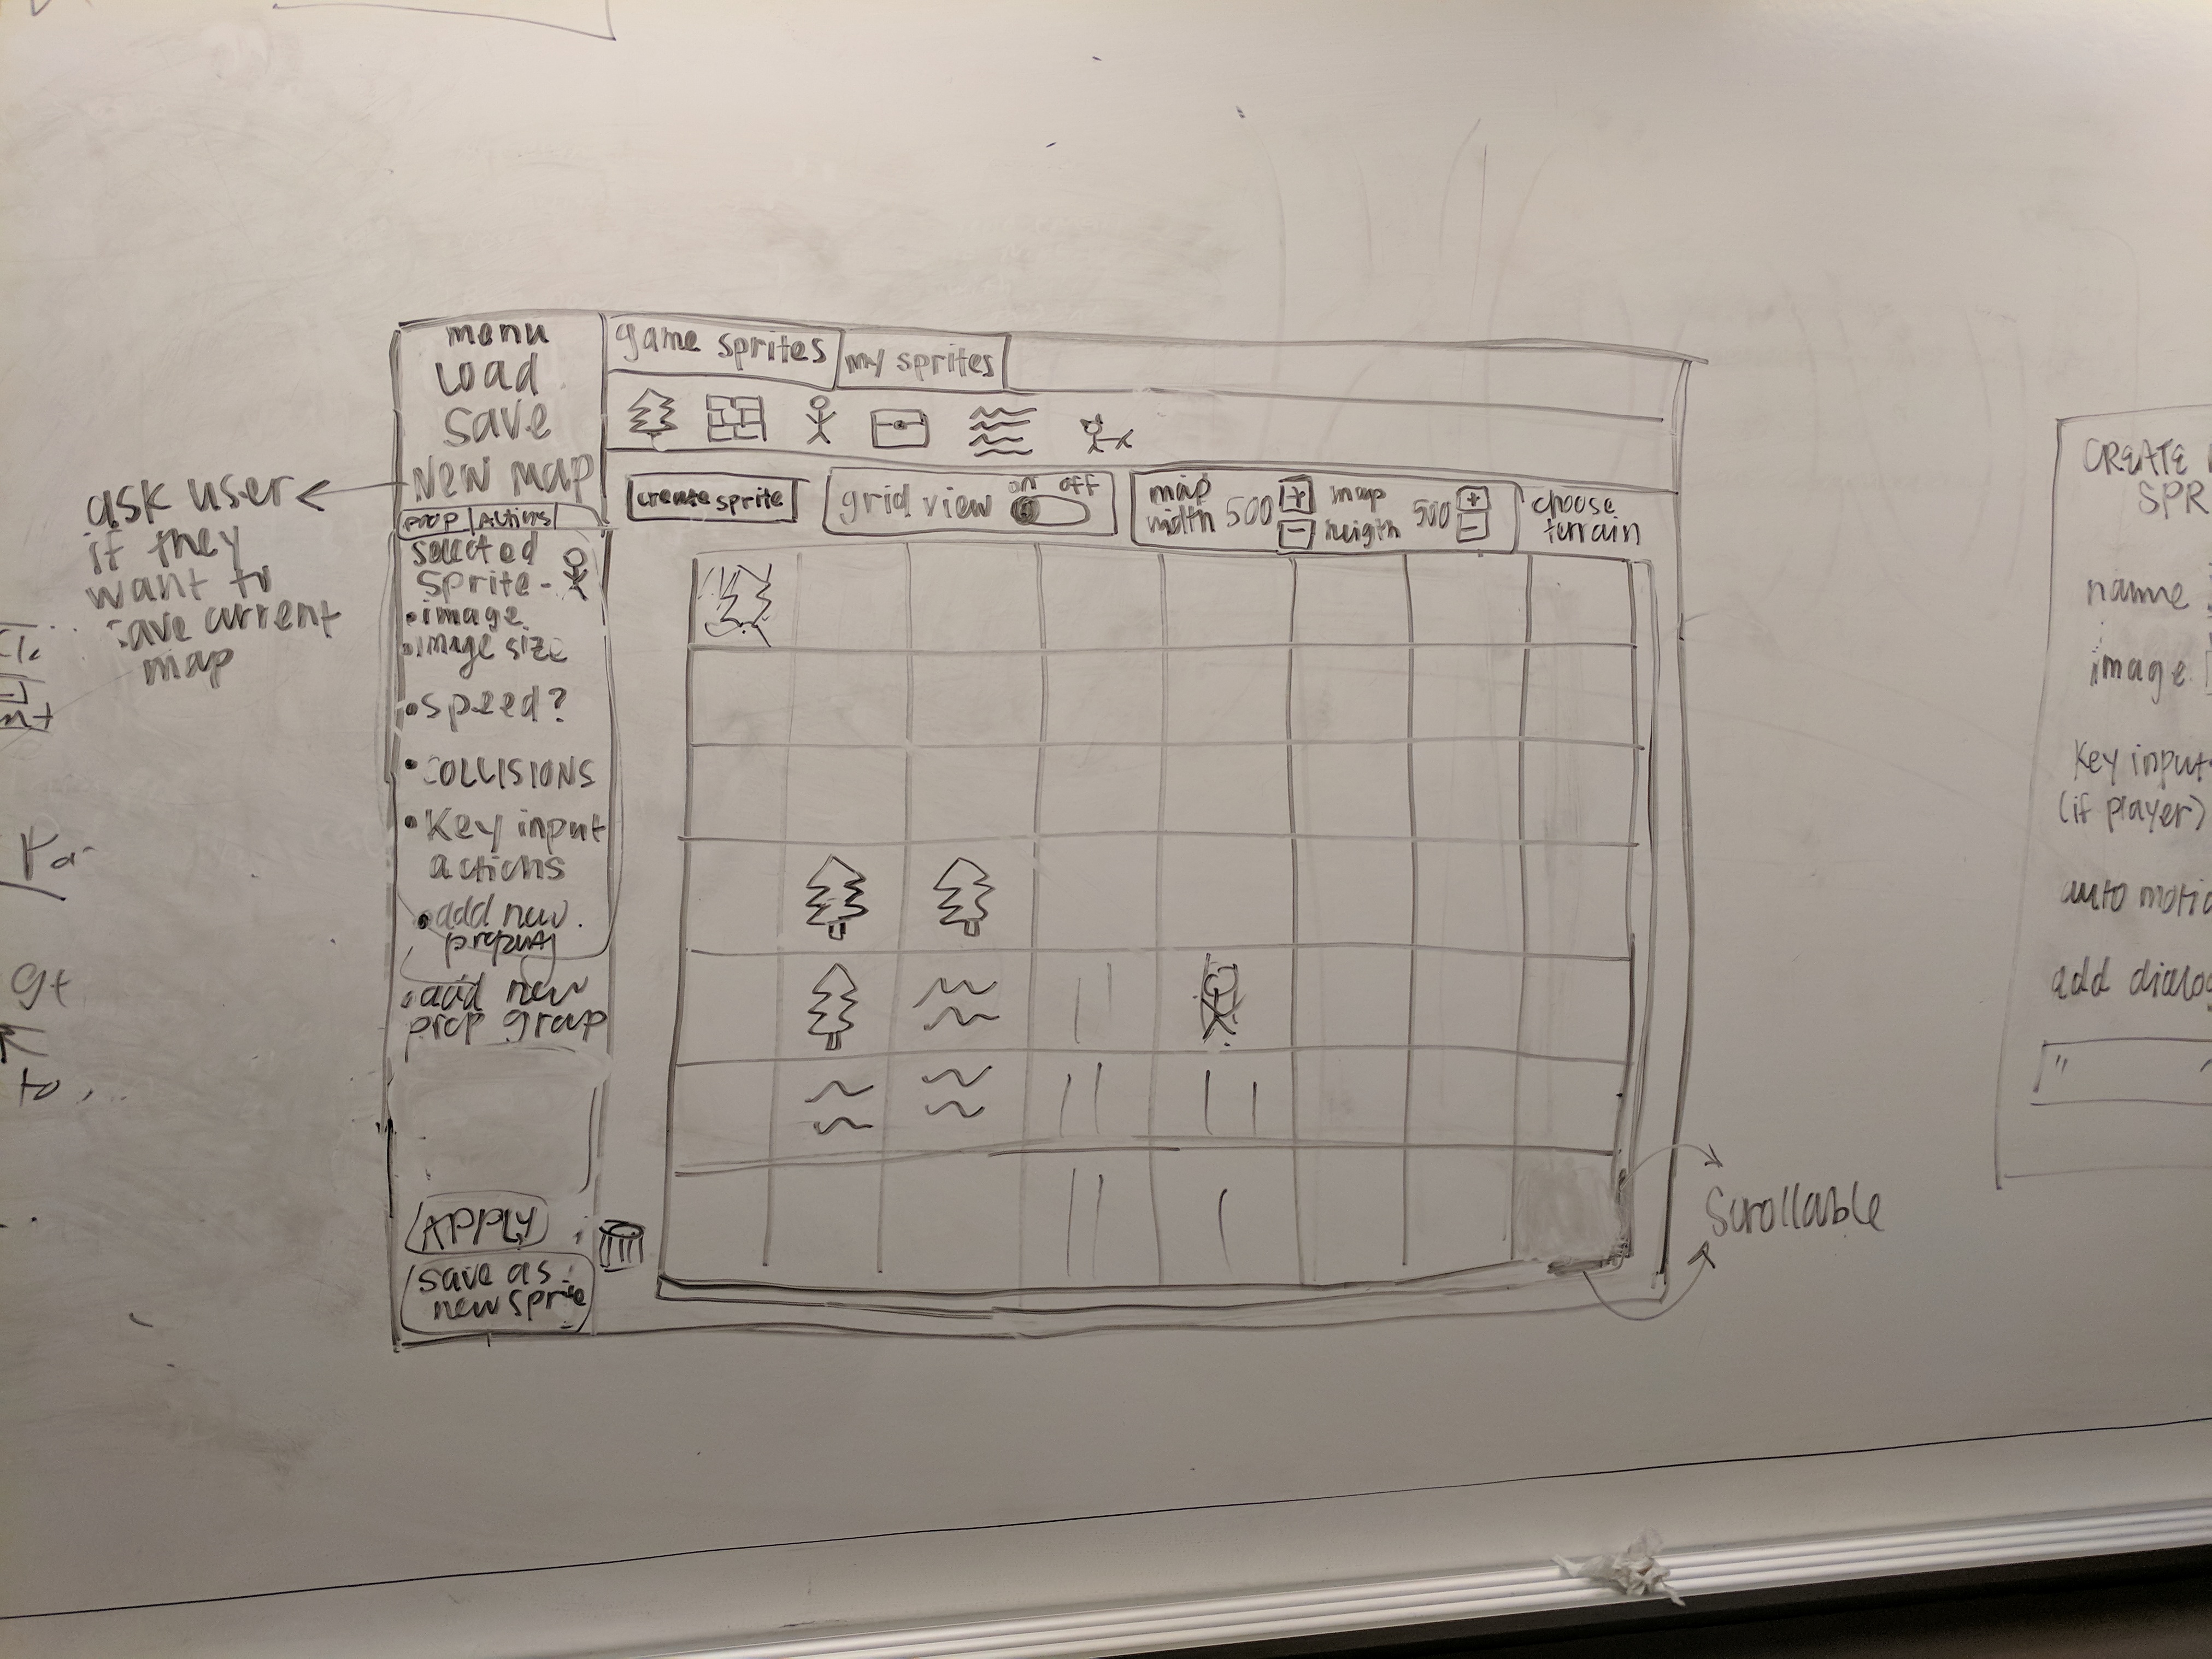 ask user
if they
want to
save current
map
menu
Load
save
New map
prop
Actions
selected
sprite -
• image
• image size
• speed?
• COLLISIONS
• Key input
actions
• add new
property
• add new
prop group
APPLY
save as
new sprite
game sprites
my sprites
create sprite
grid view
on off
map
width 500 + -
map
heigth 500 + -
choose
terrain
Scrollable
CREATE
SPR
name
image
Key input
(if player)
auto motio
add dialo
"
gt
to ...